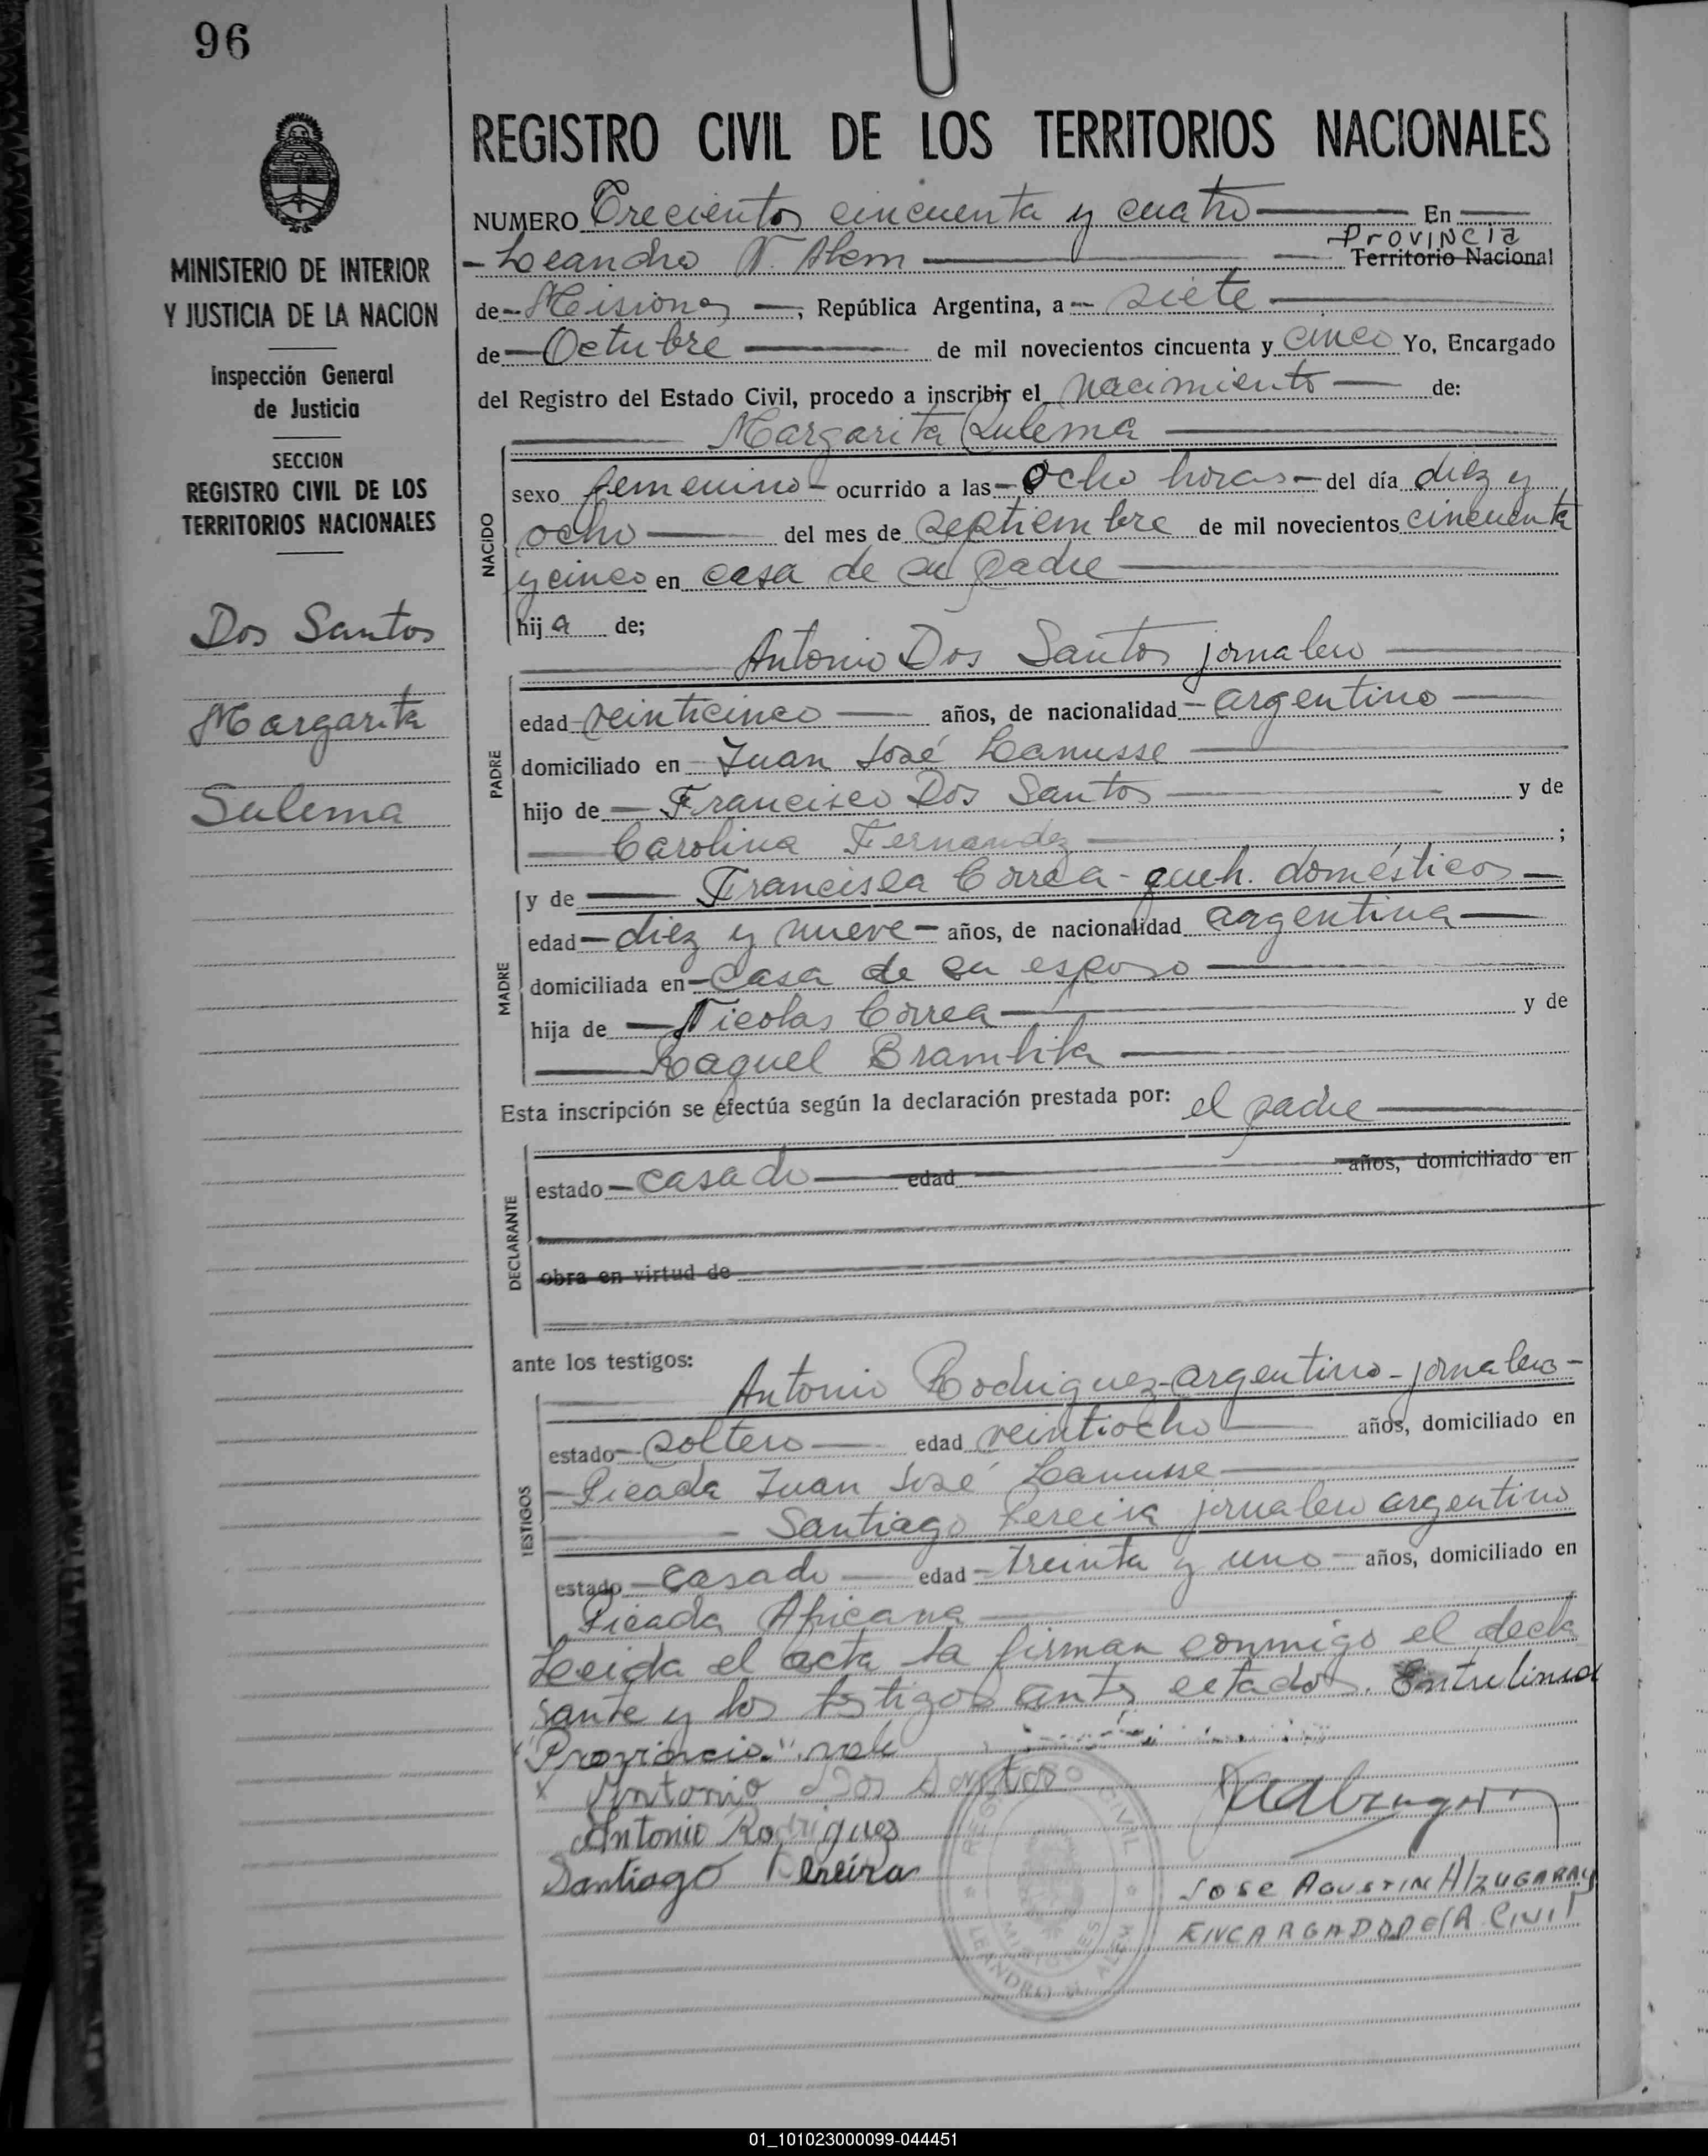 96
MINISTERIO DE INTERIOR
Y JUSTICIA DE LA NACION
Inspección General
de Justicia
SECCION
REGISTRO CIVIL DE LOS
TERRITORIOS NACIONALES
Dos Santos
Margarita
Sulema
REGISTRO CIVIL DE LOS TERRITORIOS NACIONALES
NUMERO Trecientos cincuenta y cuatro En
Provincia
Leandro N. Alem Territorio Nacional
de Misiones, República Argentina, a siete
de Octubre de mil novecientos cincuenta y cinco Yo, Encargado
del Registro del Estado Civil, procedo a inscribir el nacimiento de:
Margarita Sulema
NACIDO
sexo femenino ocurrido a las ocho horas del día diez y
ocho del mes de septiembre de mil novecientos cincuenta
y cinco en casa de su padre
hija de;
Antonio Dos Santos jornalero
PADRE
edad veinticinco años, de nacionalidad argentino
domiciliado en Juan José Lanusse
hijo de Francisco Dos Santos y de
Carolina Fernandez ;
y de Francisca Correa - queh. domésticos
MADRE
edad diez y nueve años, de nacionalidad argentina
domiciliada en casa de su esposo
hija de Nicolas Correa y de
Raquel Brambila
Esta inscripción se efectúa según la declaración prestada por: el padre
DECLARANTE
estado casado edad años, domiciliado en
obra en virtud de
ante los testigos:
Antonio Rodriguez - argentino - jornalero -
TESTIGOS
estado soltero edad veintiocho años, domiciliado en
Picada Juan José Lanusse
Santiago Pereira jornalero argentino
estado casado edad treinta y uno años, domiciliado en
Picada Africana
Leida el acta la firman conmigo el decla
rante y los testigos antes citados. Entrelinea
"Provincia" vale
x Antonio Dos Santos
Antonio Rodrigues
Santiago Pereira
REGISTRO CIVIL
MISIONES
LEANDRO N. ALEM
JOSE AGUSTIN AlZUGARAY
ENCARGADO DE lA CIVIl
01_101023000099-044451